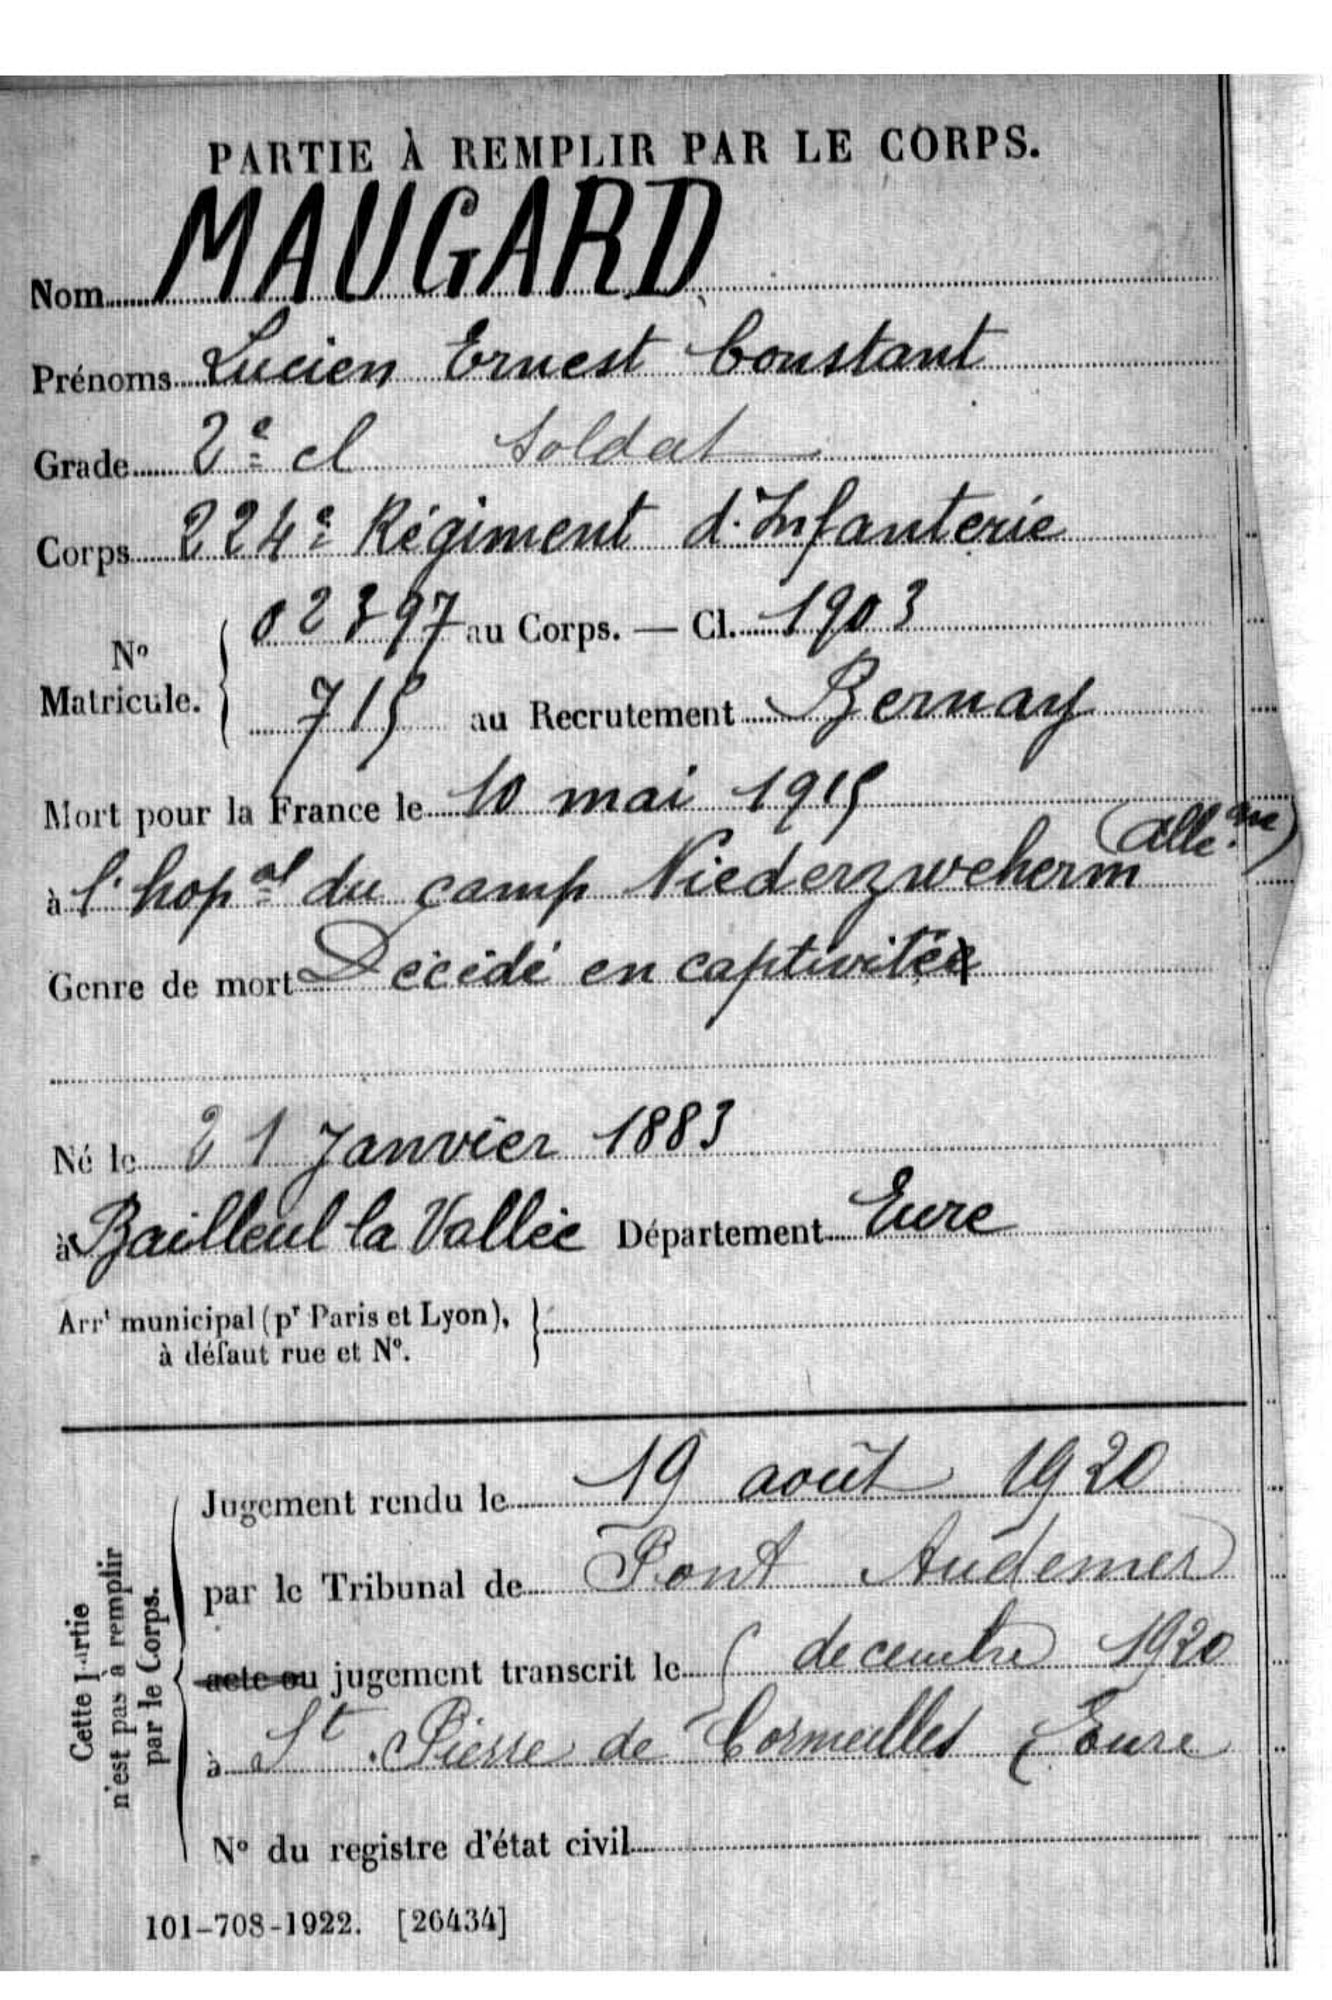 PARTIE À REMPLIR PAR LE CORPS.
Nom MAUGARD
Prénoms Lucien Ernest Constant
Grade 2e cl soldat
Corps 224e Régiment d'Infanterie
No Matricule. { 02397 au Corps. — Cl. 1903
715 au Recrutement Bernay
Mort pour la France le 10 mai 1915
à l'hopal du camp Niederzweherm (Alle.gne)
Genre de mort Décédé en captivité
Né le 21 Janvier 1883
à Bailleul la Vallée Département Eure
Arrt municipal (pr Paris et Lyon), }
à défaut rue et No.
Cette partie n'est pas à remplir par le Corps.
Jugement rendu le 19 août 1920
par le Tribunal de Pont Audemer
acte ou jugement transcrit le decembre 1920
à St. Pierre de Cormeilles (Eure
No du registre d'état civil
101-708-1922. [26434]